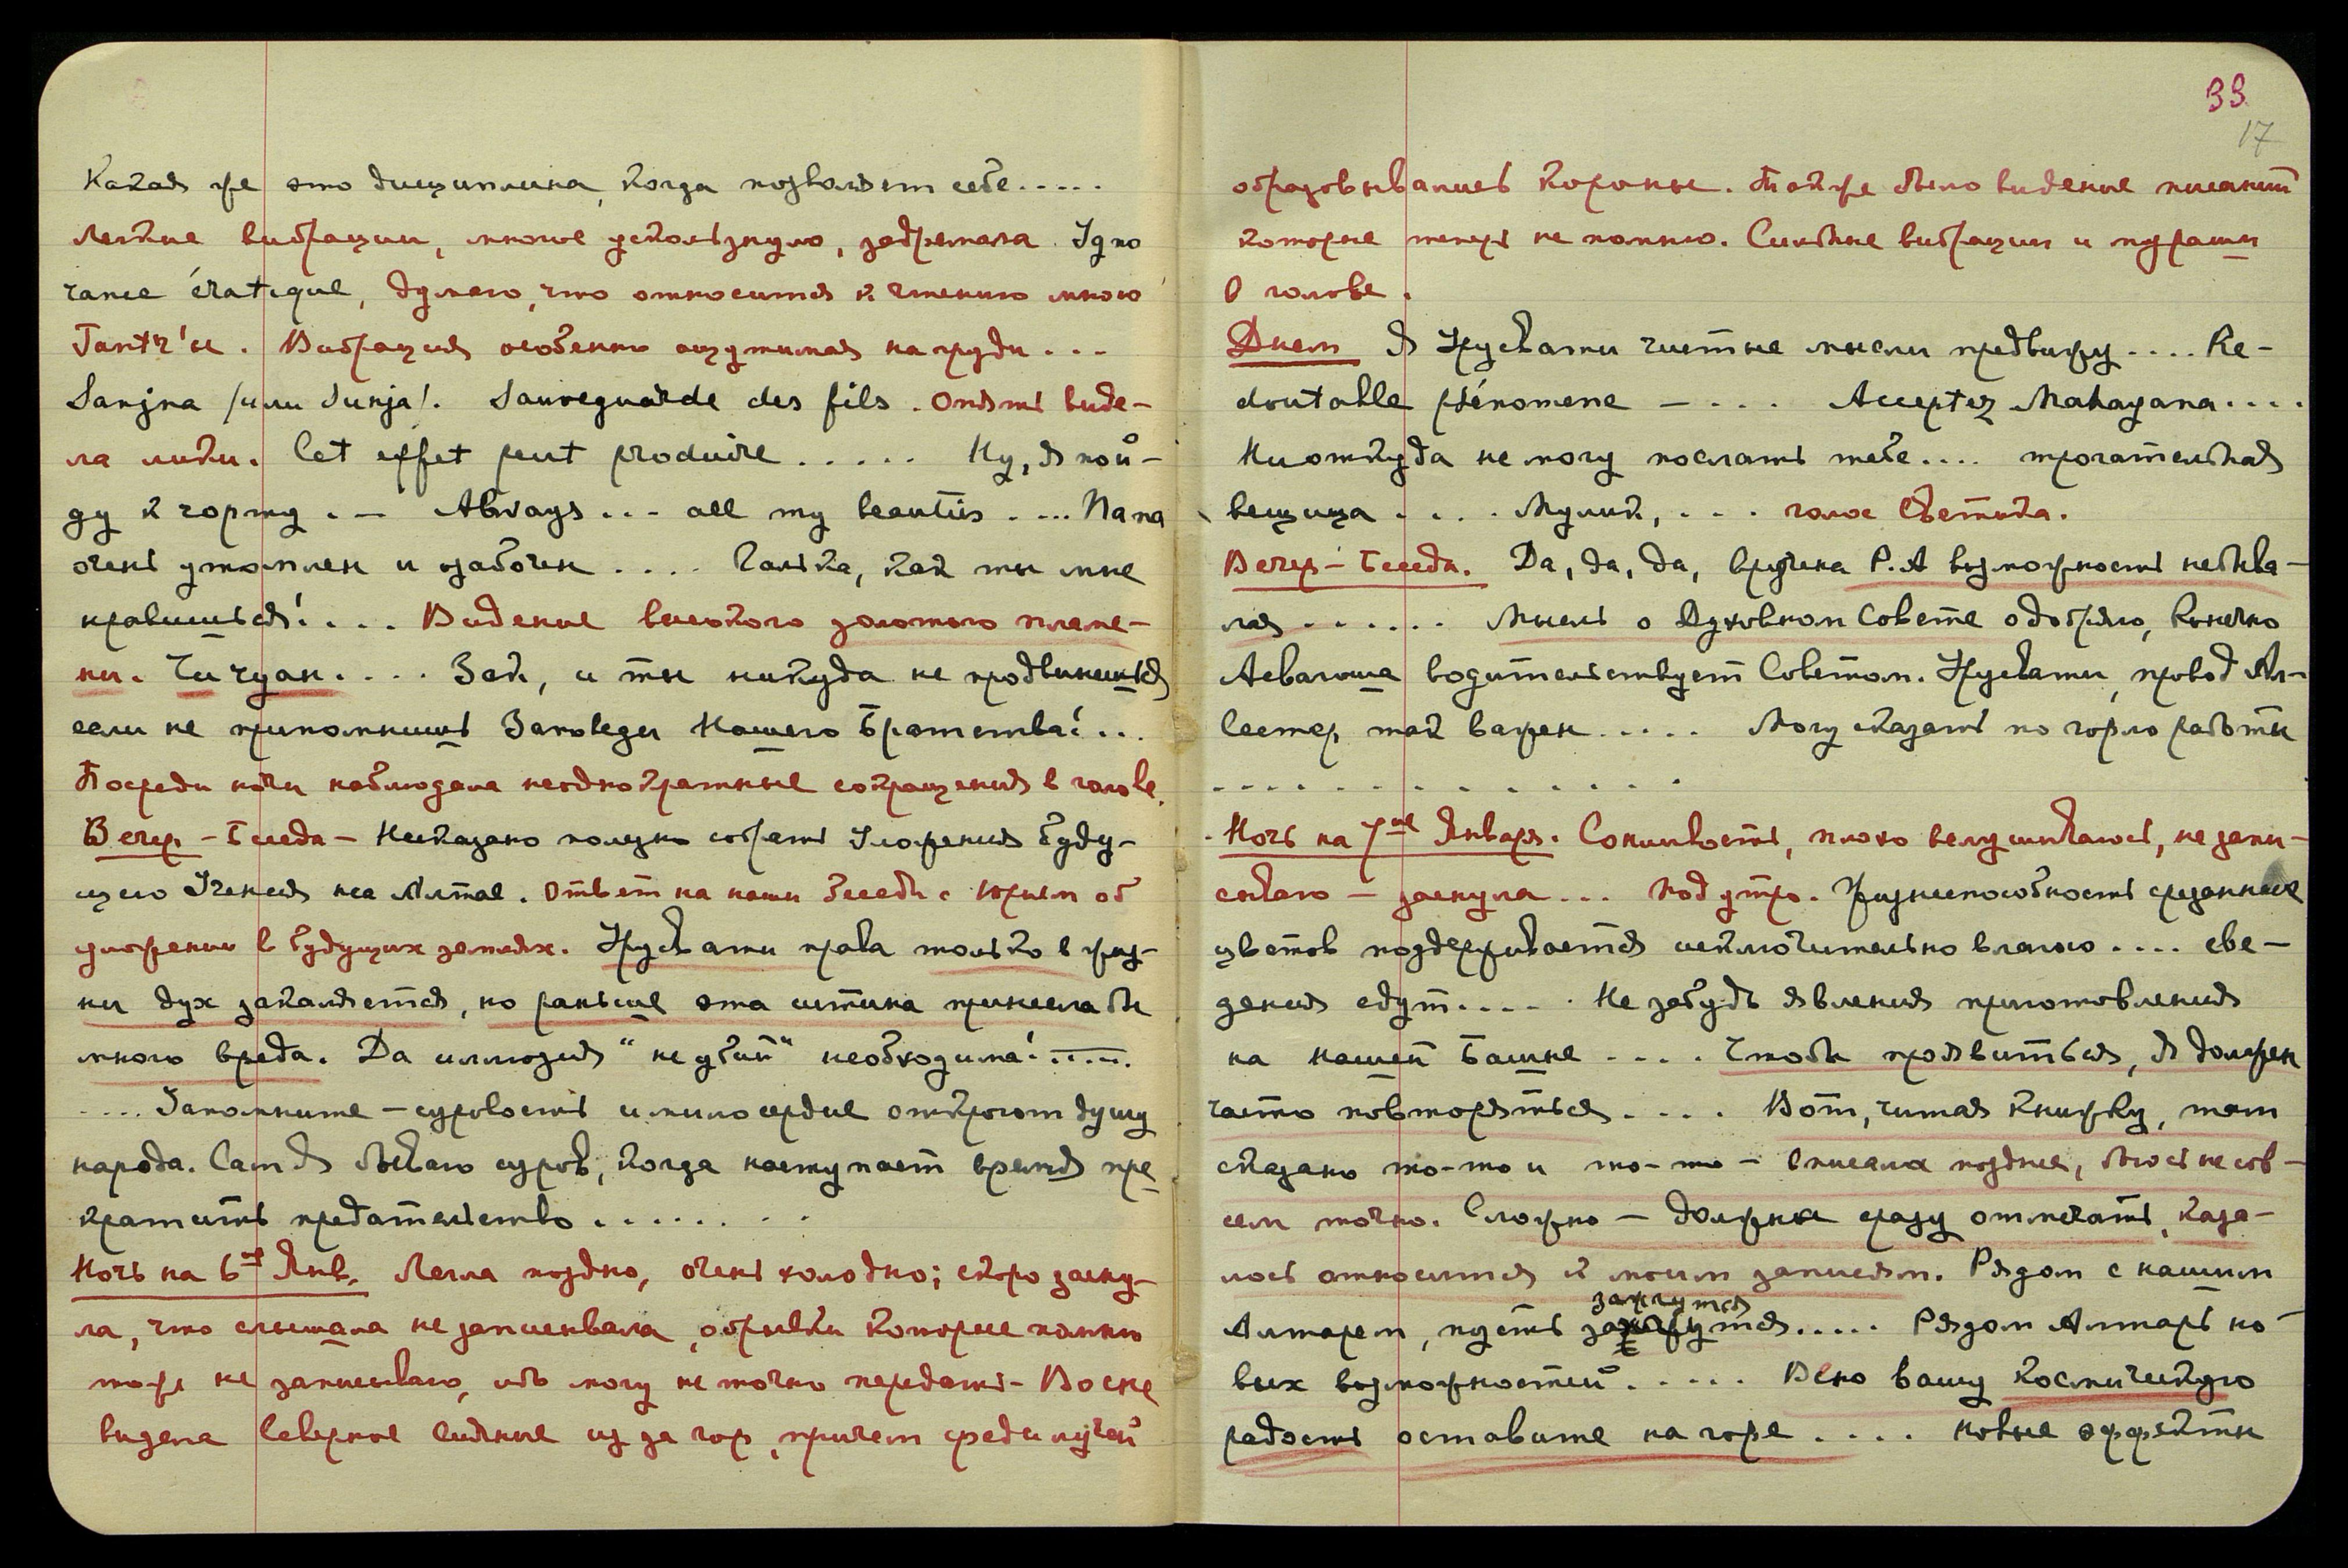 Какая же это дисциплина, когда позволяет себе.....
Легкие вибрации, многое ускользнуло, задремала. Igno
rance ératique, думаю, что относится к чтению мною
Tantr'ы. Вибрация особенно ощутимая на груди...
Sanjna /или Sunja/. Sauveguarde des fils. Опять виде-
ла лики. Cet effet peut produire ..... Ну, я пой-
ду к чорту. — Always ... all my beauties .... Папа
очень утомлен и озабочен .... Галька, как ты мне
нравишься! .... Видение высокого золотого пламе-
ни. Чи чуан. .... Зак, и ты никуда не продвинешься
если не припомнишь Заповеди Нашего Братства! ...
Посреди ночи наблюдала неоднократные сокращения в голове.
Вечер - Беседа - Несказано полезно собрать Уложения Буду-
щего Учения на Алтае. Ответ на наши беседы с Юрием об
уложении в будущих землях. Урусвати права только в жиз-
ни дух закаляется, но раньше эта истина принесла бы
много вреда. Да иллюзия "не убий" необходима! .....
.... Запомните - суровость и милосердие откроют душу
народа. Сам Я бываю суров, когда наступает время пре
кратить предательство ........
Ночь на 6ое Янв. Легла поздно, очень холодно; скоро засну-
ла, что слышала не записывала, обрывки которые помню
тоже не записываю, ибо могу не точно передать - Во сне
видела Северное Сияние из за гор, причем среди лучей
33
17
образовывались короны. Также было видение писаний
которые теперь не помню. Сильные вибрации и мураши
в голове.
Днем Я Урусвати чистые мысли предвижу .... Re-
doutable phénomene — ... Acceptez Mahayana ....
Ниоткуда не могу послать тебе .... трогательная
вещица .... Мулик, ... голос Светика.
Вечер - Беседа. Да, да, да, вручена Р.А возможность небыва-
лая ...... Мысль о Духовном Совете одобряю, конечно
Аллал-Минг водительствует Советом. Урусвати, провод Ал-
сестер, так важен ..... Могу сказать по горло работы
..............
Ночь на 7ое Января. Сонливость, плохо вслушиваюсь, не запи-
сываю - заснула ... Под утро. Жизнеспособность срезанных
цветов поддерживается исключительно влагою .... све-
дения едут .... Не забудь явления приготовления
на нашей Башне .... Чтобы проявиться, Я должен
часто повторяться .... Вот, читая книжку, там
сказано то-то и то-то - Списала позднее, боюсь не сов-
сем точно. Сложно - должны сразу отмечать, каза-
лось относится к моим записям. Рядом с нашим
зажгутся
Алтарем, пусть ..... Рядом Алтарь но-
вых возможностей ..... Всю вашу космическую
радость оставите на горе .... новые эффекты